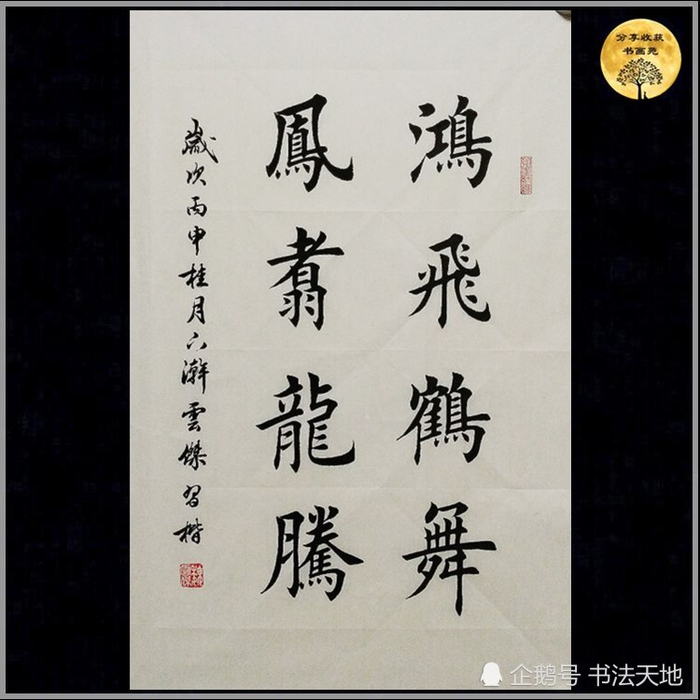 鴻飛鶴舞
鳳翥龍騰
歲次丙申桂月下澣雲傑習楷
分享收获
书画苑
企鹅号 书法天地